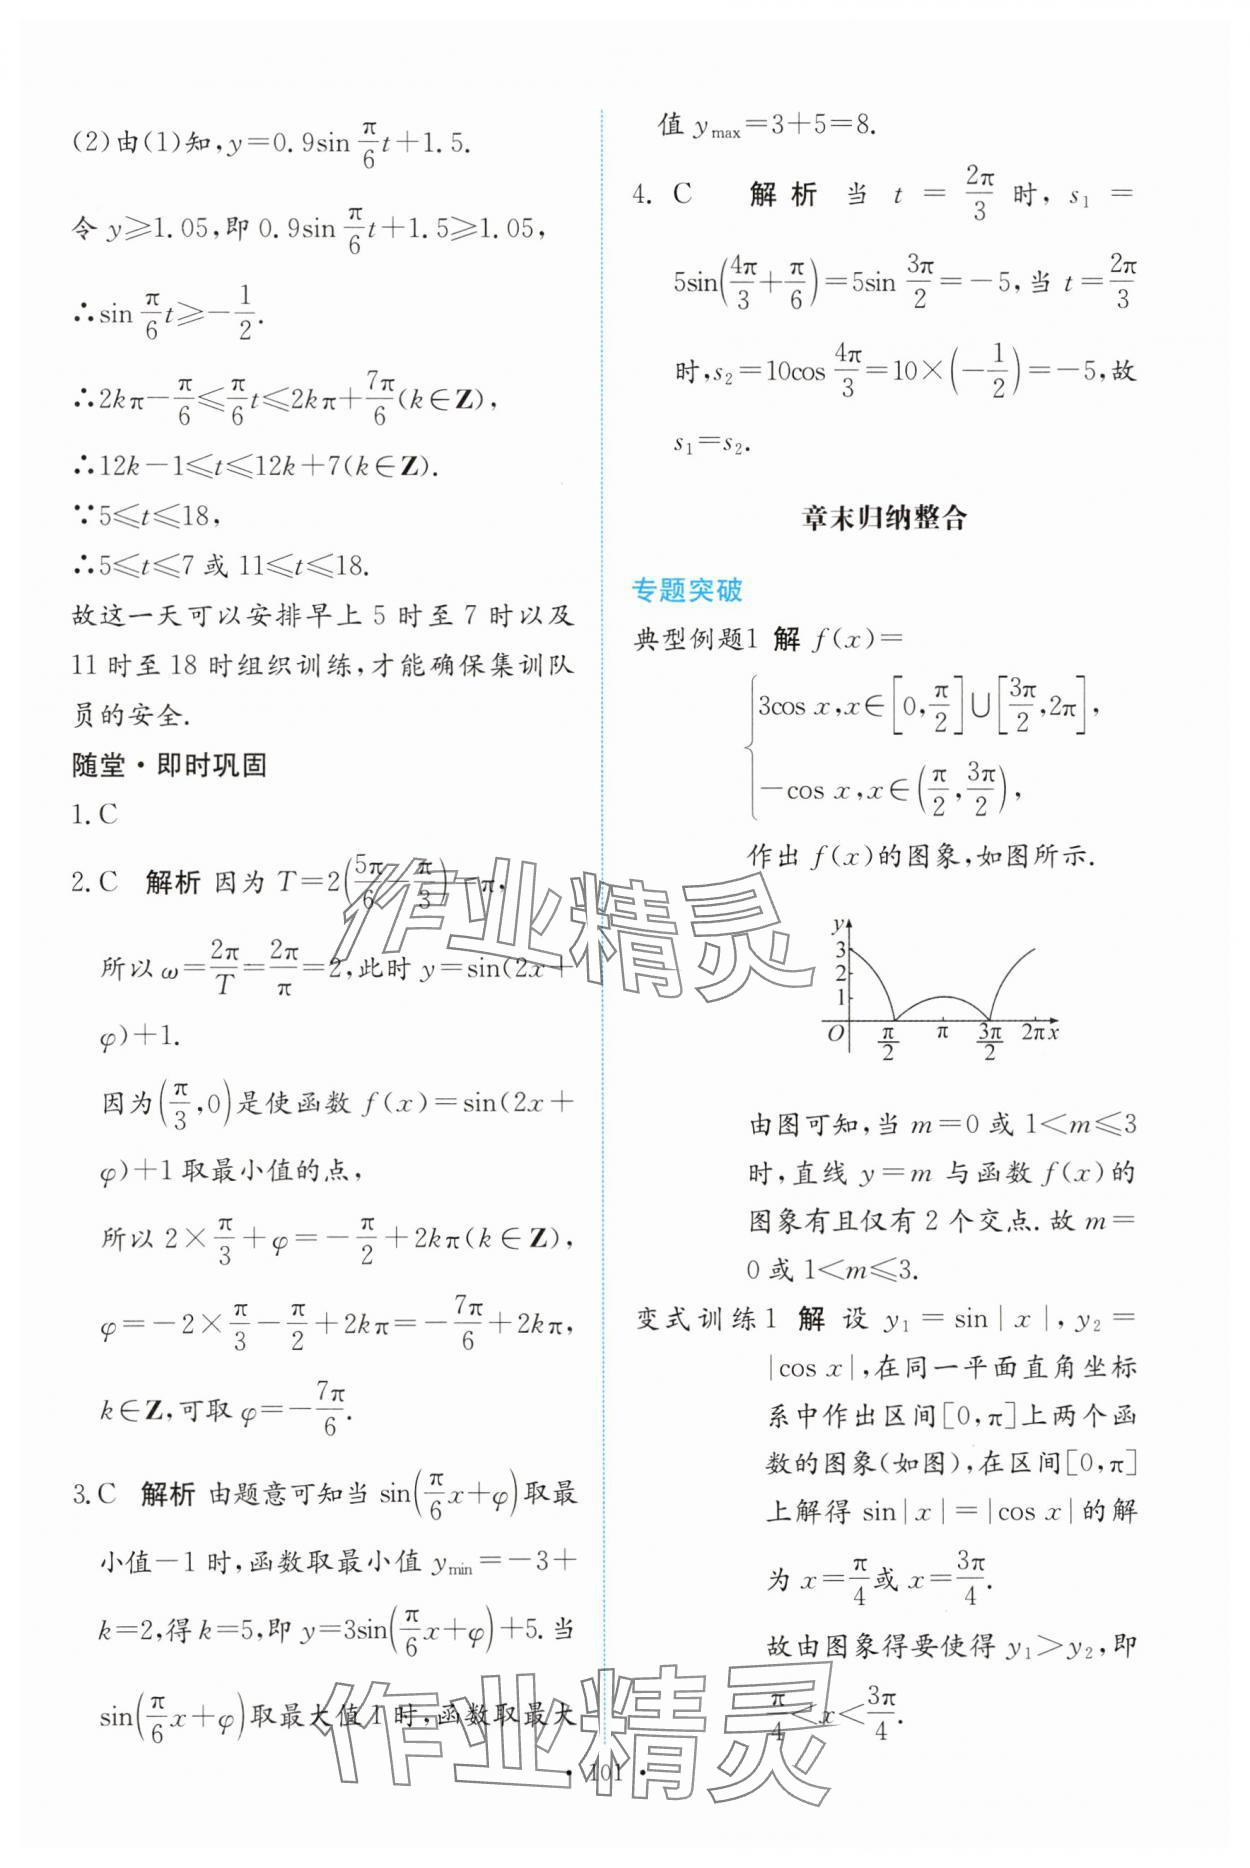 (2)由(1)知,y=0.9sin π/6 t+1.5.
令 y≥1.05,即 0.9sin π/6 t+1.5≥1.05,
∴sin π/6 t≥-1/2.
∴2kπ-π/6≤π/6 t≤2kπ+7π/6(k∈Z),
∴12k-1≤t≤12k+7(k∈Z).
∵5≤t≤18,
∴5≤t≤7 或 11≤t≤18.
故这一天可以安排早上 5 时至 7 时以及
11 时至 18 时组织训练,才能确保集训队
员的安全.
随堂·即时巩固
1. C
2. C 解析 因为 T=2(5π/6-π/3)=π,
所以 ω=2π/T=2π/π=2,此时 y=sin(2x+
φ)+1.
因为(π/3,0)是使函数 f(x)=sin(2x+
φ)+1 取最小值的点,
所以 2×π/3+φ=-π/2+2kπ(k∈Z),
φ=-2×π/3-π/2+2kπ=-7π/6+2kπ,
k∈Z,可取 φ=-7π/6.
3. C 解析 由题意可知当 sin(π/6 x+φ)取最
小值-1 时,函数取最小值 y_min=-3+
k=2,得 k=5,即 y=3sin(π/6 x+φ)+5.当
sin(π/6 x+φ)取最大值 1 时,函数取最大
值 y_max=3+5=8.
4. C 解析 当 t=2π/3 时,s₁=
5sin(4π/3+π/6)=5sin 3π/2=-5,当 t=2π/3
时,s₂=10cos 4π/3=10×(-1/2)=-5,故
s₁=s₂.
章末归纳整合
专题突破
典型例题1 解 f(x)=
{3cos x,x∈[0,π/2]∪[3π/2,2π],
-cos x,x∈(π/2,3π/2),
作出 f(x)的图象,如图所示.
y
3
2
1
O π/2 π 3π/2 2π x
由图可知,当 m=0 或 1<m≤3
时,直线 y=m 与函数 f(x)的
图象有且仅有 2 个交点.故 m=
0 或 1<m≤3.
变式训练1 解 设 y₁=sin|x|,y₂=
|cos x|,在同一平面直角坐标
系中作出区间[0,π]上两个函
数的图象(如图),在区间[0,π]
上解得 sin|x|=|cos x|的解
为 x=π/4或 x=3π/4.
故由图象得要使得 y₁>y₂,即
π/4<x<3π/4.
· 101 ·
作业精灵
作业精灵